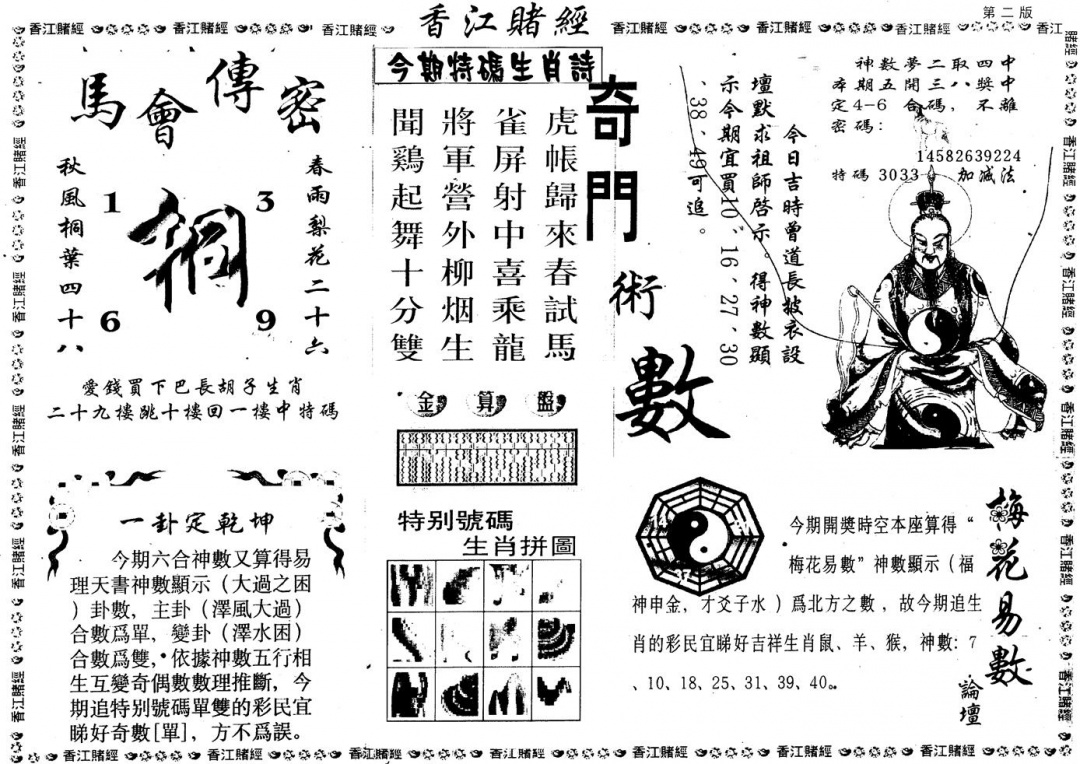 香江賭經
第二版
馬會傳密
春雨梨花二十六
秋風桐葉四十八
1
3
桐
6
9
愛錢買下巴長胡子生肖
二十九樓跳十樓回一樓中特碼
一卦定乾坤
今期六合神數又算得易
理天書神數顯示（大過之困
）卦數，主卦（澤風大過）
合數爲單，變卦（澤水困）
合數爲雙，依據神數五行相
生互變奇偶數數理推斷，今
期追特别號碼單雙的彩民宜
睇好奇數[單]，方不爲誤。
今期特碼生肖詩
虎帳歸來春試馬
雀屏射中喜乘龍
將軍營外柳烟生
聞鷄起舞十分雙
金算盤
特别號碼
生肖拼圖
奇門術數
今日吉時曾道長披衣設
壇默求祖師啓示。得神數顯
示今期宜買10、16、27、30
、38、49可追。
神數夢二取四中
本期五開三八獎中
定4-6合碼，不離
密碼：
14582639224
特碼3033 加减法
梅花易數
論壇
今期開獎時空本座算得“
梅花易數”神數顯示（福
神申金，才爻子水）爲北方之數，故今期追生
肖的彩民宜睇好吉祥生肖鼠、羊、猴，神數：7
、10、18、25、31、39、40。
香江賭經 香江賭經 香江賭經 香江賭經 香江賭經 香江賭經 香江賭經